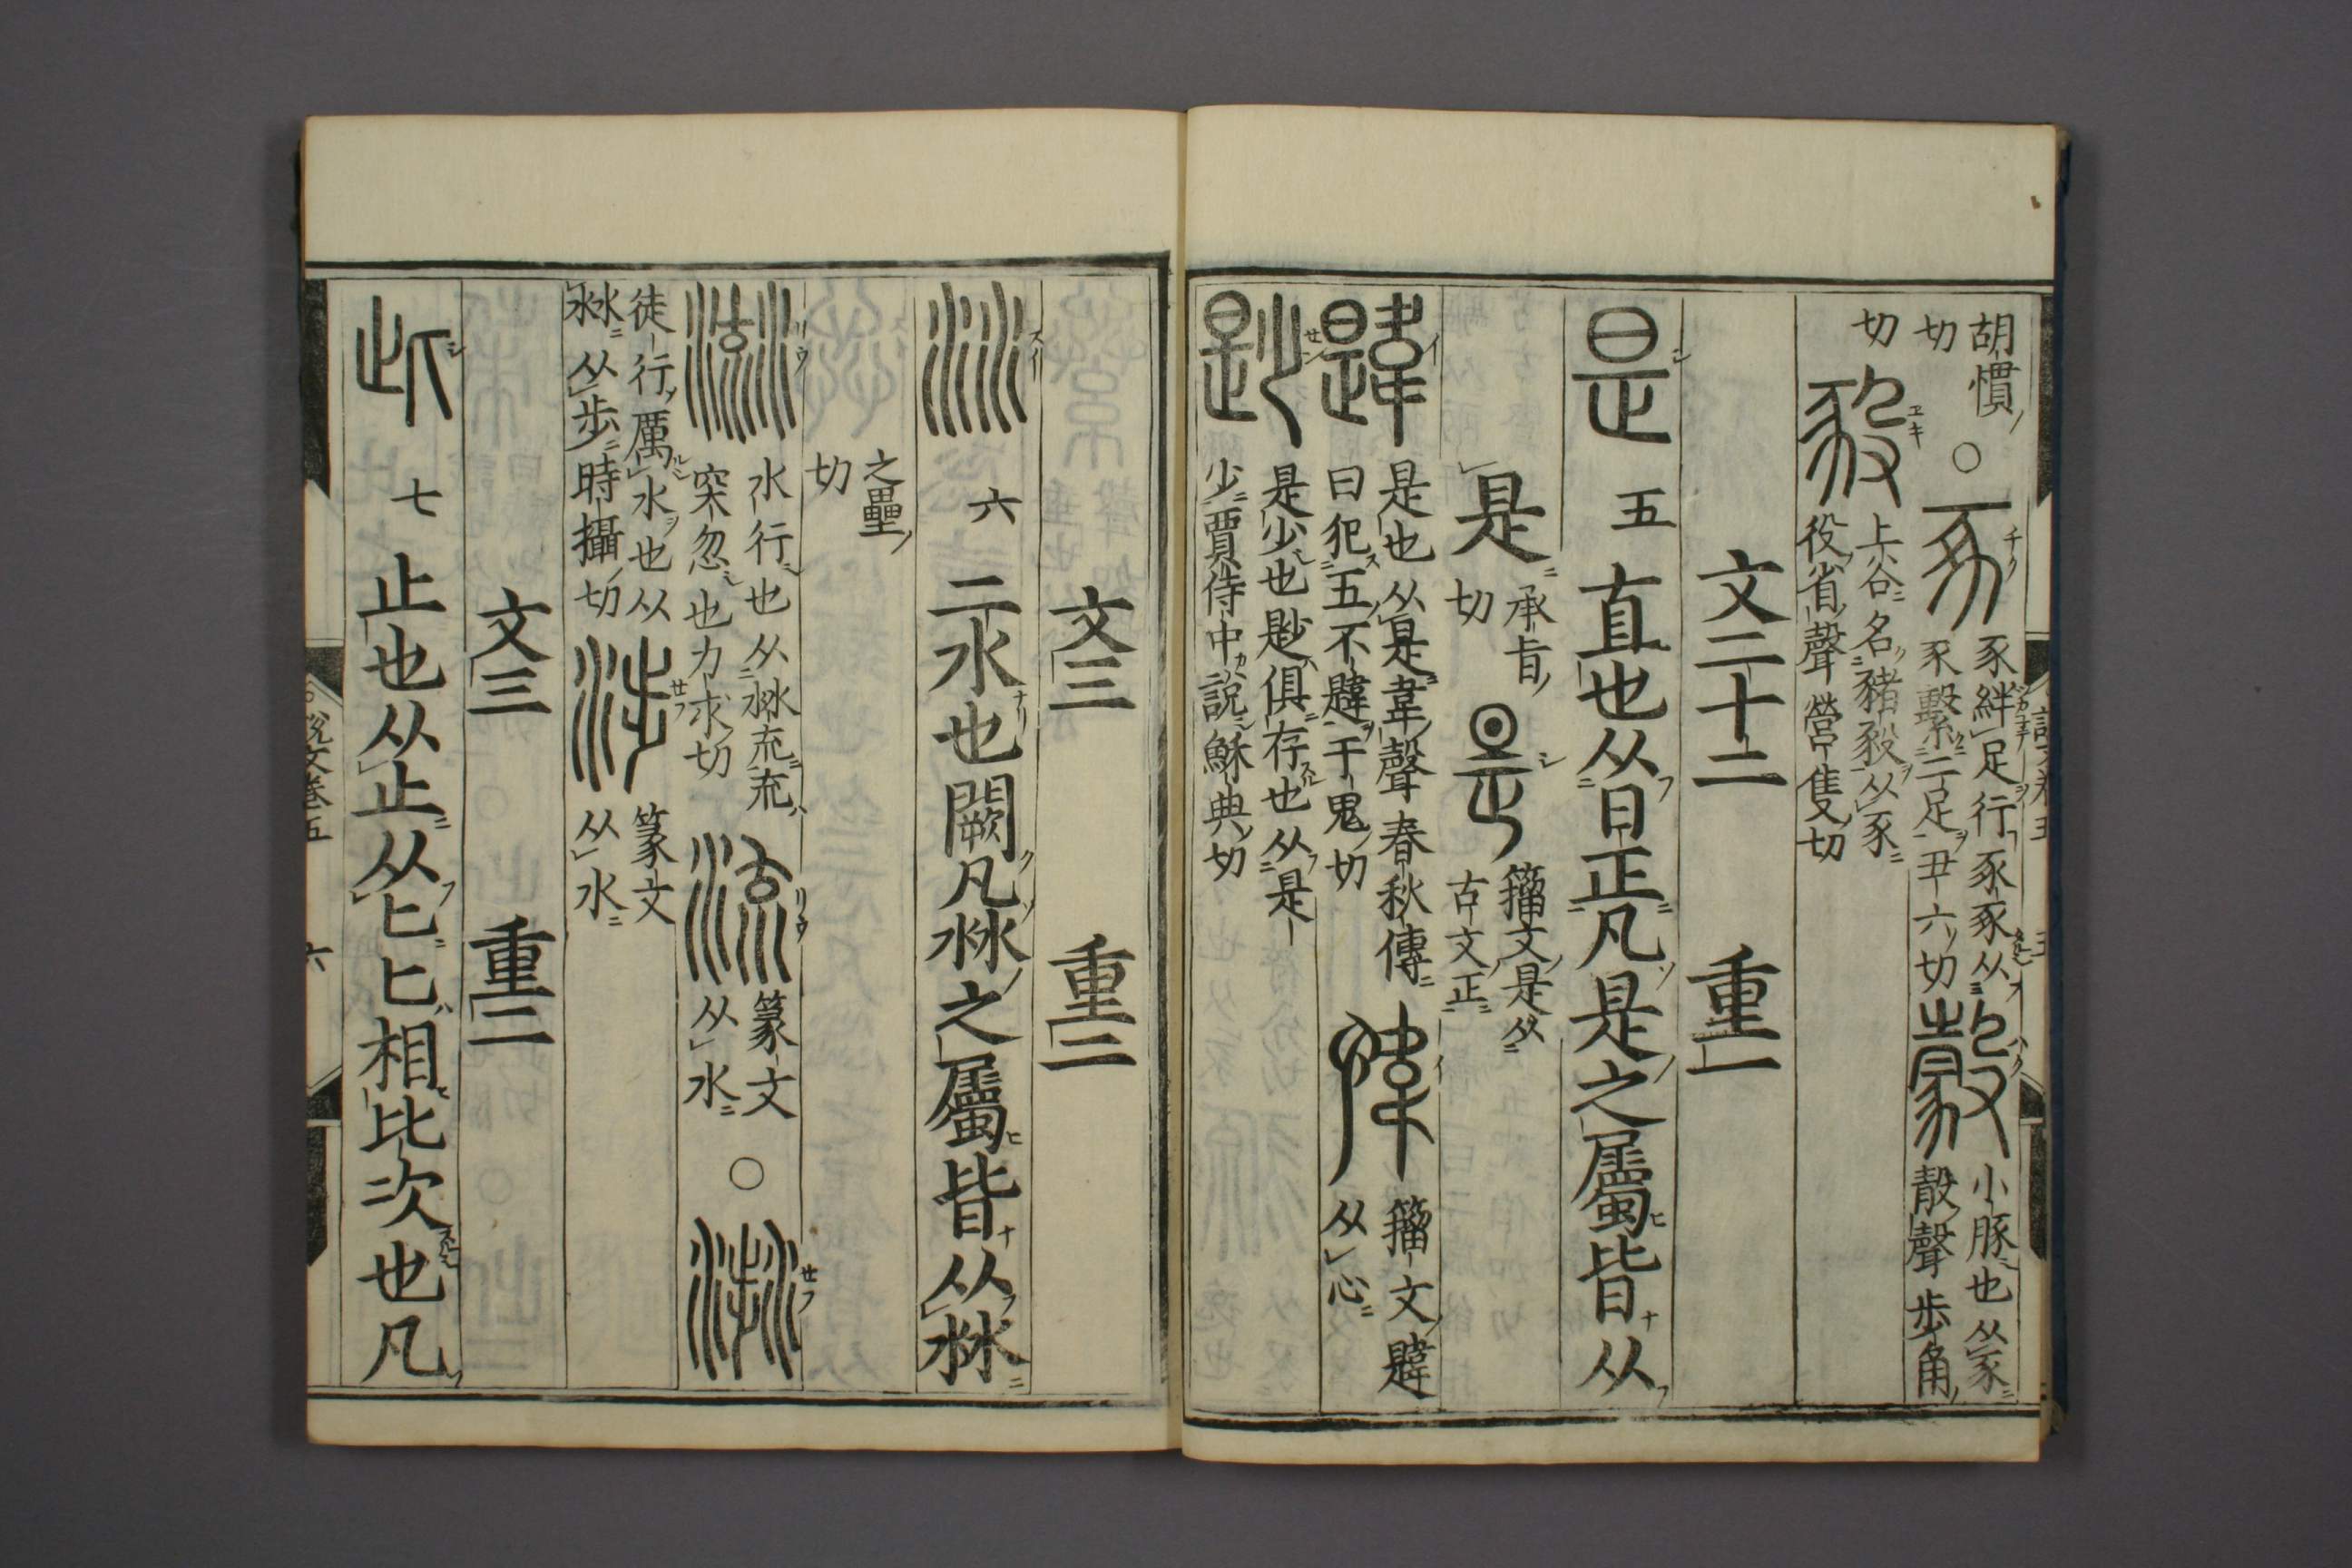 胡慣
切
○
豕絆足行豕豕从
豕繫二足丑六切
小豚也从豕
㱿聲步角
切
上谷名豬豛从豕
役省聲營隻切
文二十二
重一
是
五
直也从日正凡是之屬皆从
是
承旨
切
籀文是从
古文正
韙
是也从是韋聲春秋傳
曰犯五不韙于鬼切
籀文韙
从心
尟
是少也尟俱存也从是
少賈侍中說穌典切
文三
重二
沝
六
二水也闕凡沝之屬皆从沝
之壘
切
水行也从沝㐬㐬
突忽也力求切
篆文
从水
○
徒行厲水也从
沝从步時攝切
篆文
从水
文三
重二
此
七
止也从止从匕匕相比次也凡
說文卷五
六